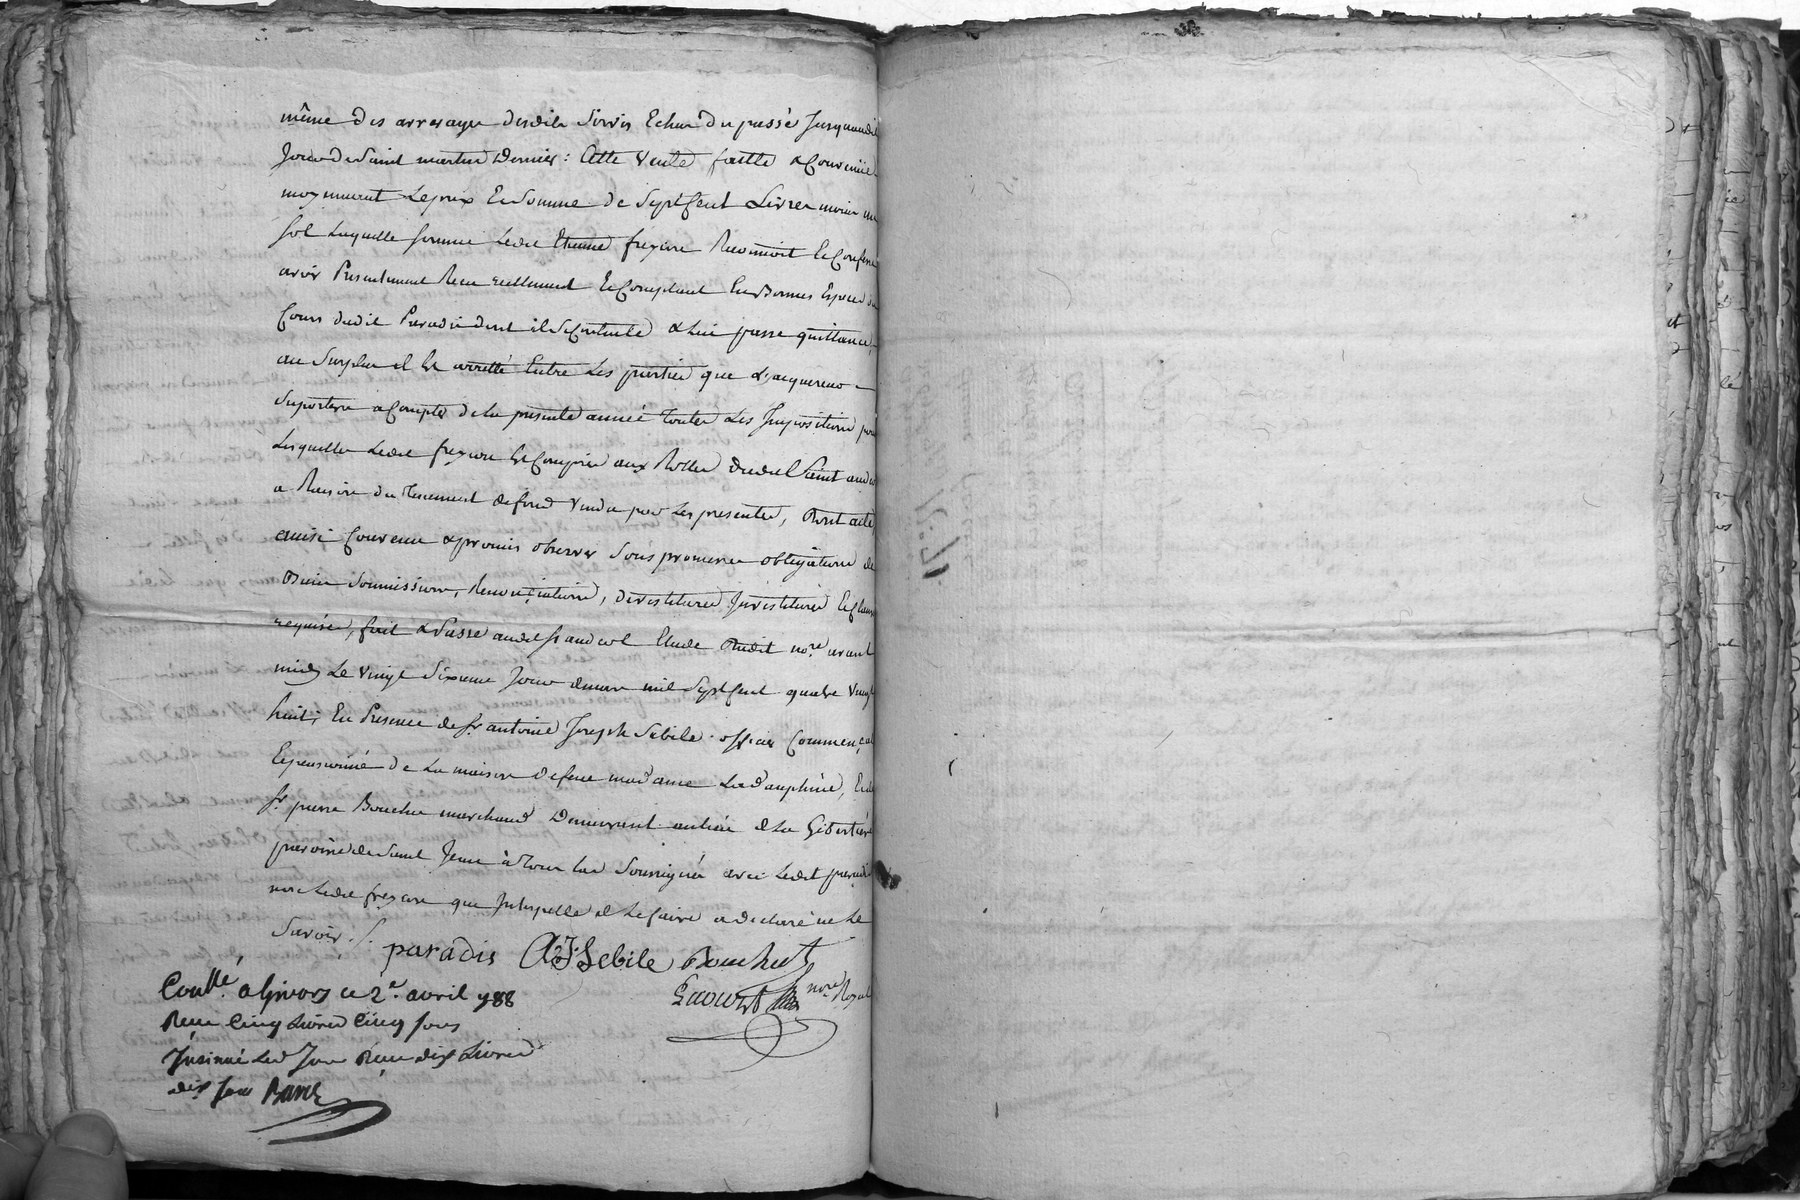 même des arrerages desdits Servis Echus du passé Jusquaudit
Jour de Saint martin Dernier : Cette Vente faitte & Convenüe
moyennant Leprix Et Somme de Septcent Livres moins un
sol Laquelle somme Ledit Etienne freyssre Reconnoit Et Confesse
avoir Presentement Recu reellement Et Comptant En Bonnes Espèces du
Cours dudit Paradis dont il Se Contente & Lui passe quittance,
au Surplus il Est arretté Entre Les parties que L'acquereur
Suportera a Compter de la presente année toutes Les Impositions pour
Lesquelles Ledit Est Compris aux Rolles dudit Saint andeol
a Raison du tenement de fond Vendu par Les presentes, Dont acte
ainsi Convenu & promis observer Sous promesses obligations de
Biens Soumissions, Renonciations, devestitures Investitures Et Clauses
requises, fait & Passé audit St andeol Etude Dudit nore avant
midy Le vingt Sixieme Jour de mars mil Septcent quatre Vingt
huit ; En Presence de Sr antoine Joseph Sebile officier Commençal
Et pensionné de La maison de feue madame La Dauphine, Et de
Sr pierre Bouchu marchand Demeurant au lieu de La Gibertière
paroisse de Saint Jean à Toulas Soussignés avec Ledit paradis
non Ledit que Interpellé de Le faire a declaré ne Le
Savoir ./.
paradis A J Sebile Bouchut
nore Royal
Conllé a Givors ce 2e avril 788
Recu Cinq Livres Cinq sous
Insinué Led Jour Recu dix Livres
dix sous